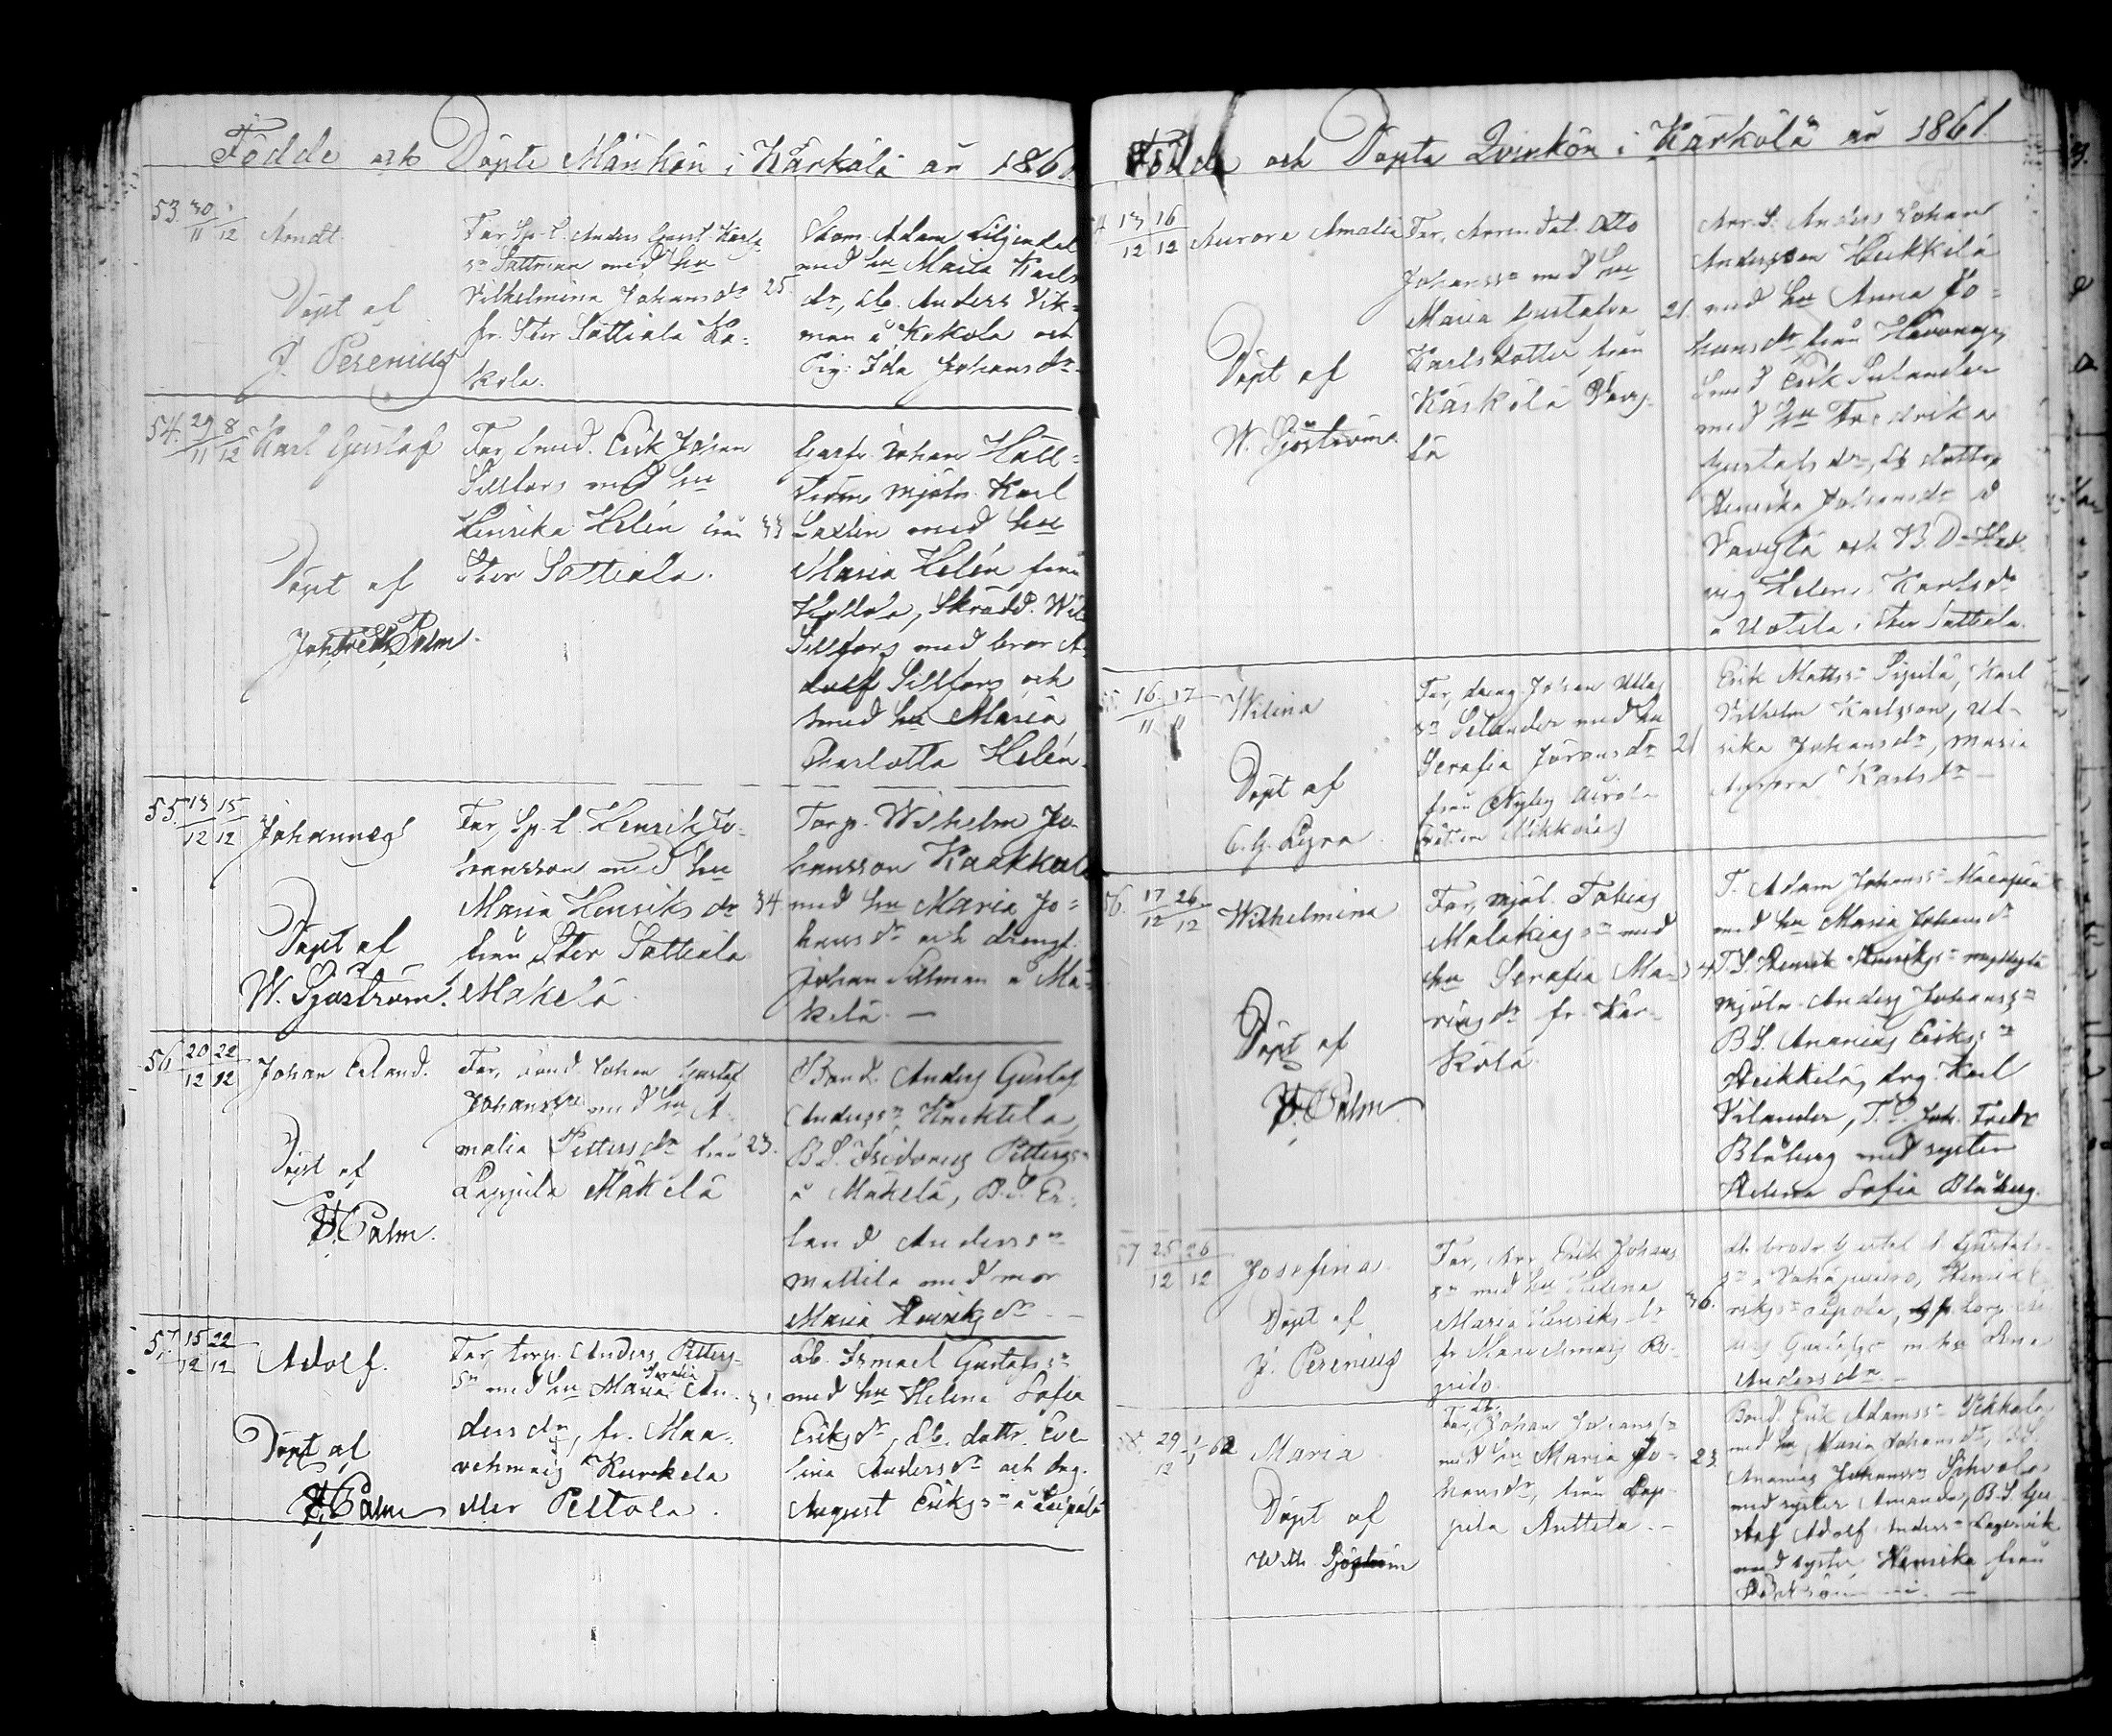 Födde och Döpte Mankön i Kärkölä år 1861
53. 30/11 1/12 Arndt.
Döpt af
J. Perenius
Far, Sp. L. Anders Gust. Karls
sn Sattman med hu
Vilhelmina Johansdr 25.
fr. Stor Sattiala Ko-
kola.
Skom. Adam Liljendal
med hu Maria Karls
dr, Db. Anders Vik-
man å Kokola och
Pig. Ida Johansdr.
54. 29/11 8/12 Karl Gustaf
Döpt af
Palm.
Far, smed. Erik Johan
Sillfors med hu
Henrika Helén från 33
Stor Sattiala.
Johan Häll-
ström, Mjöln. Karl
Saxlin med hu
Maria Helén från
Skrädd. Wil
Sillfors med bror A-
dolf Sillfors och
smed hu Maria
Charlotta Helén.
55. 13/12 15/12 Johannes
Döpt af
W. Sjöström.
Far, Sp. L. Henrik Jo-
hansson med hu
Maria Henriksdr 34.
från Stor Sattiala
Mäkelä.
Torp. Wilhelm Jo-
hansson Kaakkola
med hu Maria Jo-
hansdr och drengf.
Johan Salman å Mä-
kelä. —
56. 20/12 22/12 Johan Erland.
Döpt af
Palm.
Far, bond. Johan Gustaf
Johansson med hu A-
malia Pettersdr från 23.
Lappila Mäkelä
Bond. Anders Gustaf
Anderssn Knehtilä,
B.S. Isidorus Petterssn
å Mäkelä, B.S. Er-
land Anderssn
Mattila med mor
Maria Henriksdr —
57. 15/12 22/12 Adolf.
Döpt af
Palm
Far, torp. Anders Petters-
sn med hu Maria Serafia An-
dersdr, fr. Maa-
vehmais Kurkela
eller Peltola.
Db. Ismael Gustafssn
med hu Helena Sofia
Eriksdr, Db. dottr. Eve-
lina Andersdr och drg.
August Erikssn å
Födde och Döpte Qvinkön i Kärkölä år 1861.
13/12 16/12 Aurora Amalia
Döpt af
W. Sjöström.
Far, Arren. Otto
Johanssn med hu
Maria Gustafva 21
Karlsdotter från
Kärkölä Vävy-
lä
Arr. S. Anders Johan
Andersson Heikkilä
med hu Anna Jo-
hansdr från
Smed Erik Sulander
med hu Fredrika
Gustafsdr, Db dotter
Henrika Johansdr å
Vävylä och B. Dr Hed-
vig Helena Karlsdr
å Uotila i Stor Sattiala.
55. 16/11 17/11 Wilina
Döpt af
C. G. Lyra.
Far, dreng Johan
sn Selander med hu
Serafia Jöransdr 21
från Nyby
Erik Mattssn Sipilä, Karl
Vilhelm Karlsson, Ul-
rika Johansdr, Maria
Aurora Karlsdr —
56. 17/12 26/12 Wilhelmina
Döpt af
Palm
Far, mjöl. Tobias
Malakias sn med
hu Serafia Ma- 34
riasdr fr. Kär-
kölä
T. Adam Johanssn
med hu Maria Johansdr
T.S. Henrik Henrikssn
mjöln. Anders Johanssn
B.S. Ananias Erikssn
Heikkilä, drg. Karl
Vilander, T.S. Joh. Fredr
Blåberg med syster
Helena Sofia Blåberg.
57 25/12 26/12 Josefina.
Döpt af
J. Perenius
Far, Arr. Erik Johans
sn med hu Helena 36.
Maria Henriksdr
fr Maavehmais
Andersdr. —
58. 29/12 1/1 62 Maria
Döpt af
Wilh. Sjöström
Far, Db. Johan Johanssn
med hu Maria Jo- 23
hansdr, från Lap-
pila Anttila. —
Bond. Erik Adamssn
med hu Maria Johansdr,
Ananias Johanssn
med syster Amanda, B.S. Gu
staf Adolf Anderssn
med syster Henrika från